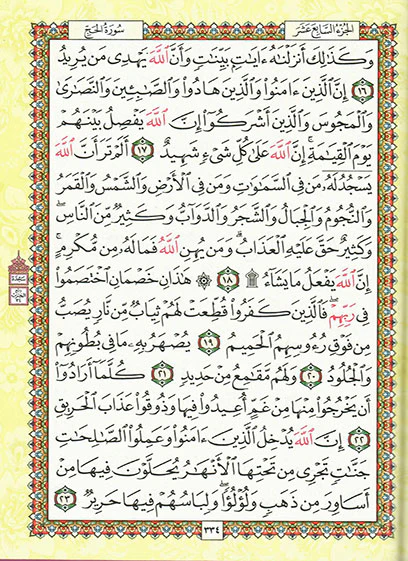 سُورَةُ الحَجّ
الجُزْءُ السَّابِعَ عَشَرَ
وَكَذَٰلِكَ أَنزَلْنَٰهُ ءَايَٰتِۭ بَيِّنَٰتٍ وَأَنَّ ٱللَّهَ يَهْدِى مَن يُرِيدُ
١٦ إِنَّ ٱلَّذِينَ ءَامَنُوا۟ وَٱلَّذِينَ هَادُوا۟ وَٱلصَّٰبِـِٔينَ وَٱلنَّصَٰرَىٰ
وَٱلْمَجُوسَ وَٱلَّذِينَ أَشْرَكُوٓا۟ إِنَّ ٱللَّهَ يَفْصِلُ بَيْنَهُمْ
يَوْمَ ٱلْقِيَٰمَةِ ۚ إِنَّ ٱللَّهَ عَلَىٰ كُلِّ شَىْءٍ شَهِيدٌ ١٧ أَلَمْ تَرَ أَنَّ ٱللَّهَ
يَسْجُدُ لَهُۥ مَن فِى ٱلسَّمَٰوَٰتِ وَمَن فِى ٱلْأَرْضِ وَٱلشَّمْسُ وَٱلْقَمَرُ
وَٱلنُّجُومُ وَٱلْجِبَالُ وَٱلشَّجَرُ وَٱلدَّوَآبُّ وَكَثِيرٌ مِّنَ ٱلنَّاسِ ۖ
وَكَثِيرٌ حَقَّ عَلَيْهِ ٱلْعَذَابُ ۗ وَمَن يُهِنِ ٱللَّهُ فَمَا لَهُۥ مِن مُّكْرِمٍ ۚ
إِنَّ ٱللَّهَ يَفْعَلُ مَا يَشَآءُ ۩ ١٨ ۞ هَٰذَانِ خَصْمَانِ ٱخْتَصَمُوا۟
فِى رَبِّهِمْ ۖ فَٱلَّذِينَ كَفَرُوا۟ قُطِّعَتْ لَهُمْ ثِيَابٌ مِّن نَّارٍ يُصَبُّ
مِن فَوْقِ رُءُوسِهِمُ ٱلْحَمِيمُ ١٩ يُصْهَرُ بِهِۦ مَا فِى بُطُونِهِمْ
وَٱلْجُلُودُ ٢٠ وَلَهُم مَّقَٰمِعُ مِنْ حَدِيدٍ ٢١ كُلَّمَآ أَرَادُوٓا۟
أَن يَخْرُجُوا۟ مِنْهَا مِنْ غَمٍّ أُعِيدُوا۟ فِيهَا وَذُوقُوا۟ عَذَابَ ٱلْحَرِيقِ
٢٢ إِنَّ ٱللَّهَ يُدْخِلُ ٱلَّذِينَ ءَامَنُوا۟ وَعَمِلُوا۟ ٱلصَّٰلِحَٰتِ
جَنَّٰتٍ تَجْرِى مِن تَحْتِهَا ٱلْأَنْهَٰرُ يُحَلَّوْنَ فِيهَا مِنْ
أَسَاوِرَ مِن ذَهَبٍ وَلُؤْلُؤًا ۖ وَلِبَاسُهُمْ فِيهَا حَرِيرٌ ٢٣
سجدة
٣٣٤